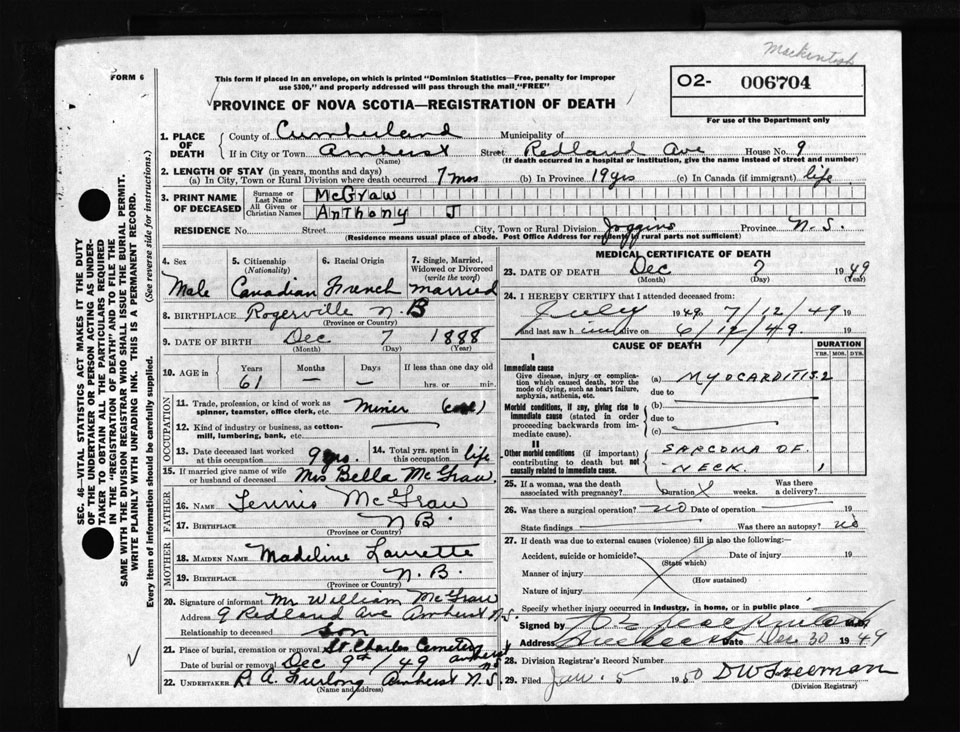 Mackintosh
FORM 6
This form if placed in an envelope, on which is printed "Dominion Statistics—Free, penalty for improper
use $300," and properly addressed will pass through the mail "FREE"
O2- 006704
For use of the Department only
PROVINCE OF NOVA SCOTIA—REGISTRATION OF DEATH
SEC. 46—VITAL STATISTICS ACT MAKES IT THE DUTY
OF THE UNDERTAKER OR PERSON ACTING AS UNDER-
TAKER TO OBTAIN ALL THE PARTICULARS REQUIRED
IN THE "REGISTRATION OF DEATH" AND TO FILE THE
SAME WITH THE DIVISION REGISTRAR WHO SHALL ISSUE THE BURIAL PERMIT.
WRITE PLAINLY WITH UNFADING INK. THIS IS A PERMANENT RECORD.
Every item of information should be carefully supplied. (See reverse side for instructions.)
1. PLACE OF DEATH County of Cumberland Municipality of
If in City or Town Amherst Street Redland Ave House No. 9
(Name) (If death occurred in a hospital or institution, give the name instead of street and number)
2. LENGTH OF STAY (in years, months and days)
(a) In City, Town or Rural Division where death occurred 7 mos (b) In Province 19 yrs (c) In Canada (if immigrant) life
3. PRINT NAME OF DECEASED Surname or Last Name McGraw
All Given or Christian Names Anthony J
RESIDENCE No. Street City, Town or Rural Division Joggins Province N.S.
(Residence means usual place of abode. Post Office Address for residents in rural parts not sufficient)
4. Sex 5. Citizenship (Nationality) 6. Racial Origin 7. Single, Married, Widowed or Divorced (write the word)
Male Canadian French married
8. BIRTHPLACE Rogerville N.B
(Province or Country)
9. DATE OF BIRTH Dec 7 1888
(Month) (Day) (Year)
10. AGE in Years Months Days If less than one day old
61 — — hrs. or min.
OCCUPATION
11. Trade, profession, or kind of work as spinner, teamster, office clerk, etc. Miner (coal)
12. Kind of industry or business, as cotton-mill, lumbering, bank, etc.
13. Date deceased last worked at this occupation 9 yrs. 14. Total yrs. spent in this occupation life
15. If married give name of wife or husband of deceased Mrs Bella McGraw.
FATHER
16. Name McGraw
17. Birthplace N B.
(Province or Country)
MOTHER
18. Maiden Name Madeline
19. Birthplace N.B.
(Province or Country)
20. Signature of informant Mr William McGraw
Address 9 Redland Ave Amherst N.S.
Relationship to deceased son
21. Place of burial, cremation or removal St. Charles Cemetery Amherst NS
Date of burial or removal Dec 9th/49
22. UNDERTAKER R. A. Furlong Amherst N.S
(Name and address)
MEDICAL CERTIFICATE OF DEATH
23. DATE OF DEATH Dec 7 1949
(Month) (Day) (Year)
24. I HEREBY CERTIFY that I attended deceased from
July 1949 7/12/49 19
and last saw him alive on 6/12/49. 19
CAUSE OF DEATH DURATION
YRS. MOS. DYS.
I
Immediate cause
Give disease, injury or complication which caused death, NOT the mode of dying, such as heart failure, asphyxia, asthenia, etc.
(a) MYOCARDITIS. 2
due to
Morbid conditions, if any, giving rise to immediate cause (stated in order proceeding backwards from immediate cause).
(b)
due to
(c)
II
Other morbid conditions (if important) contributing to death but not causally related to immediate cause.
SARCOMA OF
NECK. 1
25. If a woman, was the death associated with pregnancy? Duration weeks. Was there a delivery?
26. Was there a surgical operation? no Date of operation 19
State findings Was there an autopsy? no
27. If death was due to external causes (violence) fill in also the following:—
Accident, suicide or homicide? Date of injury 19
(State which)
Manner of injury
(How sustained)
Nature of injury
Specify whether injury occurred in industry, in home, or in public place
Signed by Mackintosh
Address Date Dec 30 1949
28. Division Registrar's Record Number
29. Filed Jan. 5 1950 DW Freeman
(Division Registrar)